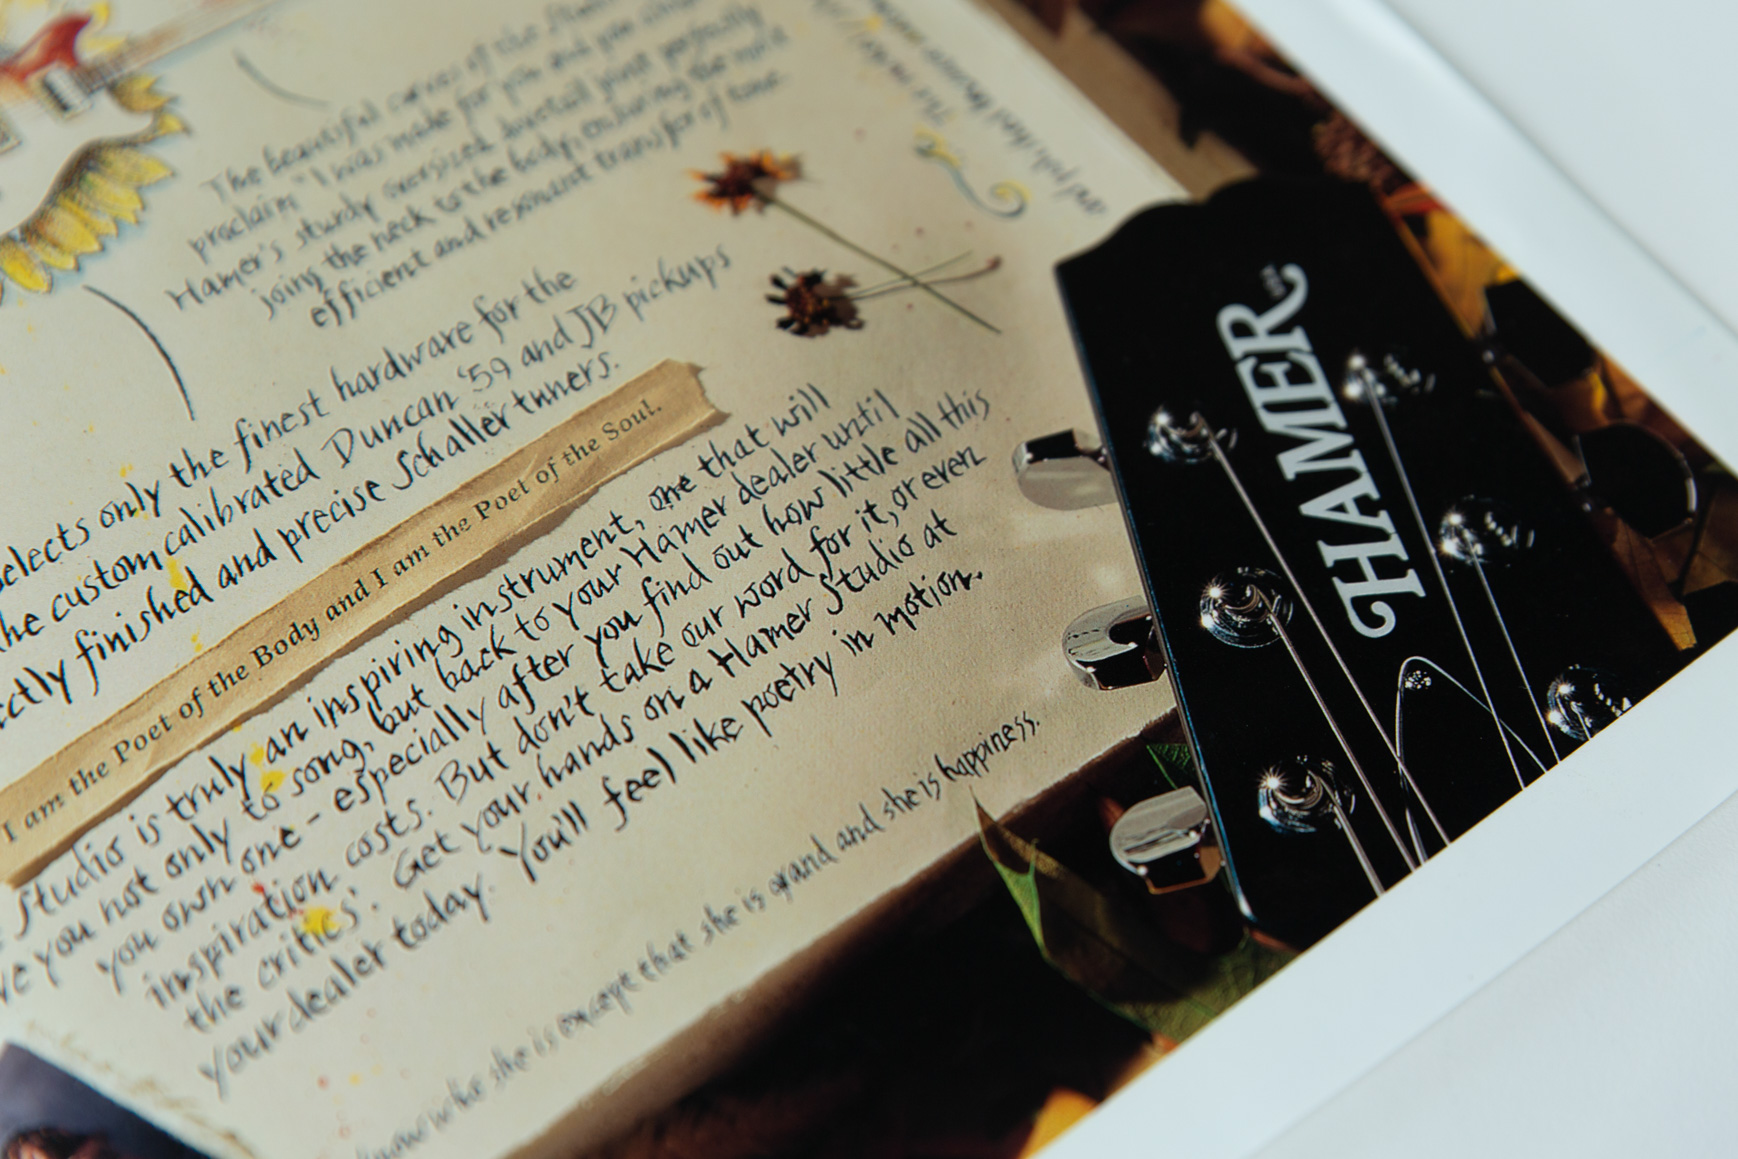 The beautiful curves of the
proclaim "I was made for you and you
Hamer's sturdy oversized buttail joint perfectly
joing the neck to the body, ensuring the most
efficient and resonant transfer of tone
elects only the finest hardware for the
he custom calibrated Duncan '59 and JB pickups
ctly finished and precise Schaller tuners.
I am the Poet of the Body and I am the Poet of the Soul.
Studio is truly an inspiring instrument, one that will
ve you not only to song, but back to your Hamer dealer until
you own one - especially after you find out how little all this
inspiration costs. But don't take our word for it, or even
the critics'. Get your hands on a Hamer Studio at
your dealer today. You'll feel like poetry in motion.
she is except that she is grand and she is happiness.
HAMER